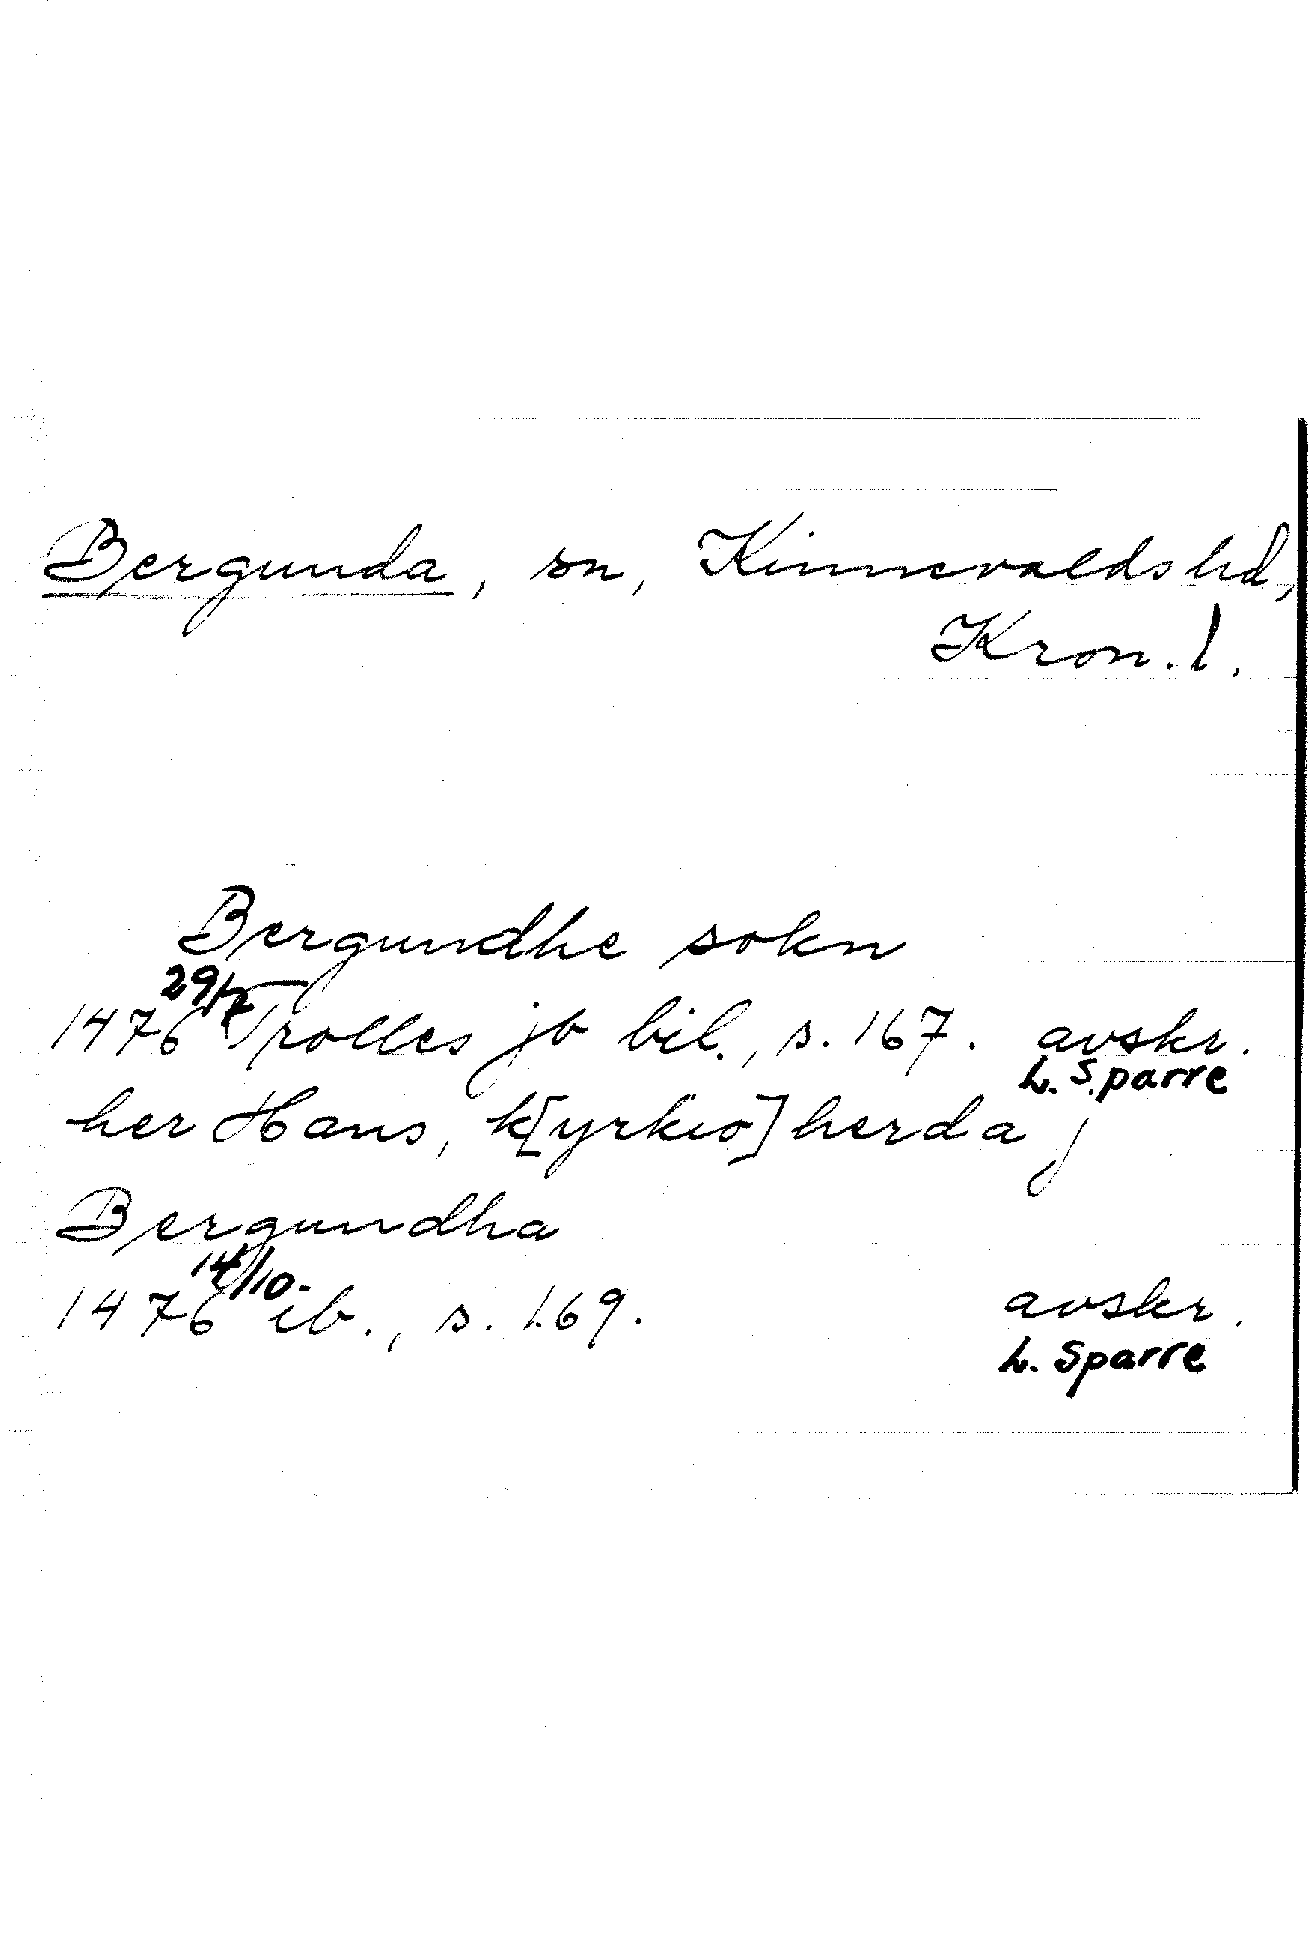 Bergunda, sn, Kinnevalds hd,
Kron. l.
Bergundhe sokn
1476 29/7 Trolles jb bil., s. 167. avskr.
L. Sparre
her Hans, k[yrkio]herda j
Bergundha
1476 14/10. ib., s. 169. avskr.
L. Sparre